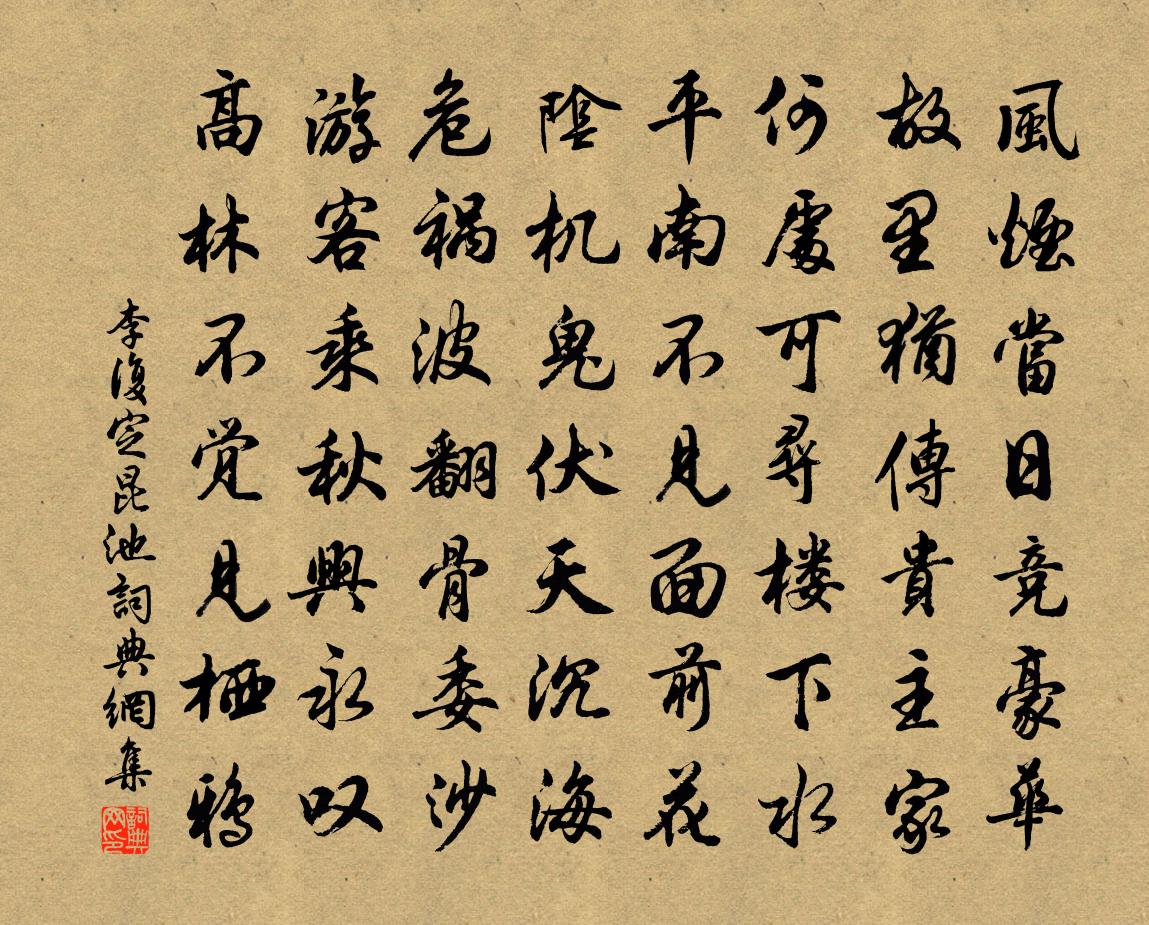 風煙當日竞豪華
故里猶傳貴主家
何處可尋楼下水
平南不見面前花
陰机鬼伏天沉海
危祸波翻骨委沙
游客乘秋興永叹
高林不觉見栖鴉
李復定昆池詞典網集
詞典网印